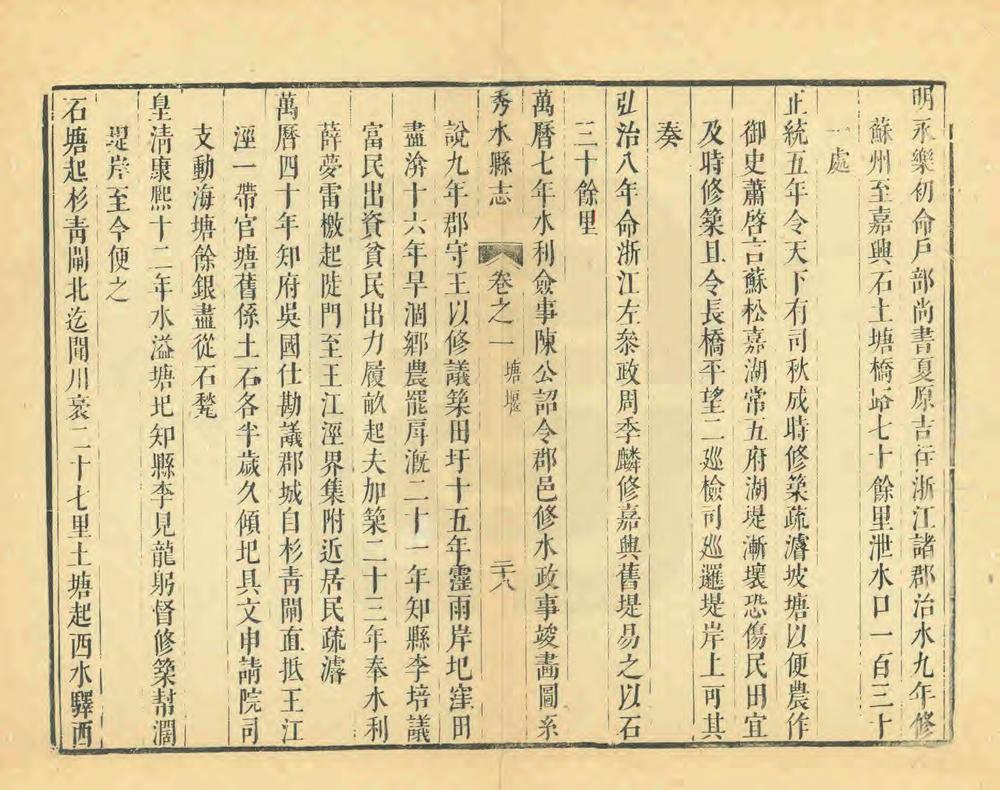 明永樂初命戶部尚書夏原吉往浙江諸郡治水九年修
蘇州至嘉興石土塘橋路七十餘里泄水口一百三十
一處
正統五年令天下有司秋成時修築疏濬坡塘以便農作
御史蕭啓言蘇松嘉湖常五府湖堤漸壞恐傷民田宜
及時修築且令長橋平望二廵檢司廵邏堤岸上可其
奏
弘治八年命浙江左叅政周季麟修嘉興舊堤易之以石
三十餘里
萬曆七年水利僉事陳公詔令郡邑修水政事竣畵圖系
秀水縣志 卷之一 塘堰 二十八
說九年郡守王以修議築田圩十五年霪雨岸圮窪田
盡渰十六年旱涸鄉農罷戽漑二十一年知縣李培議
富民出資貧民出力履畝起夫加築二十三年奉水利
薛夢雷檄起陡門至王江涇界集附近居民疏濬
萬曆四十年知府吳國仕勘議郡城自杉靑閘直抵王江
涇一帶官塘舊係土石各半歲久傾圮具文申請院司
支動海塘餘銀盡從石甃
皇淸康熙十二年水溢塘圮知縣李見龍躬督修築幇濶
堤岸至今便之
石塘起杉靑閘北迄聞川袤二十七里土塘起西水驛西